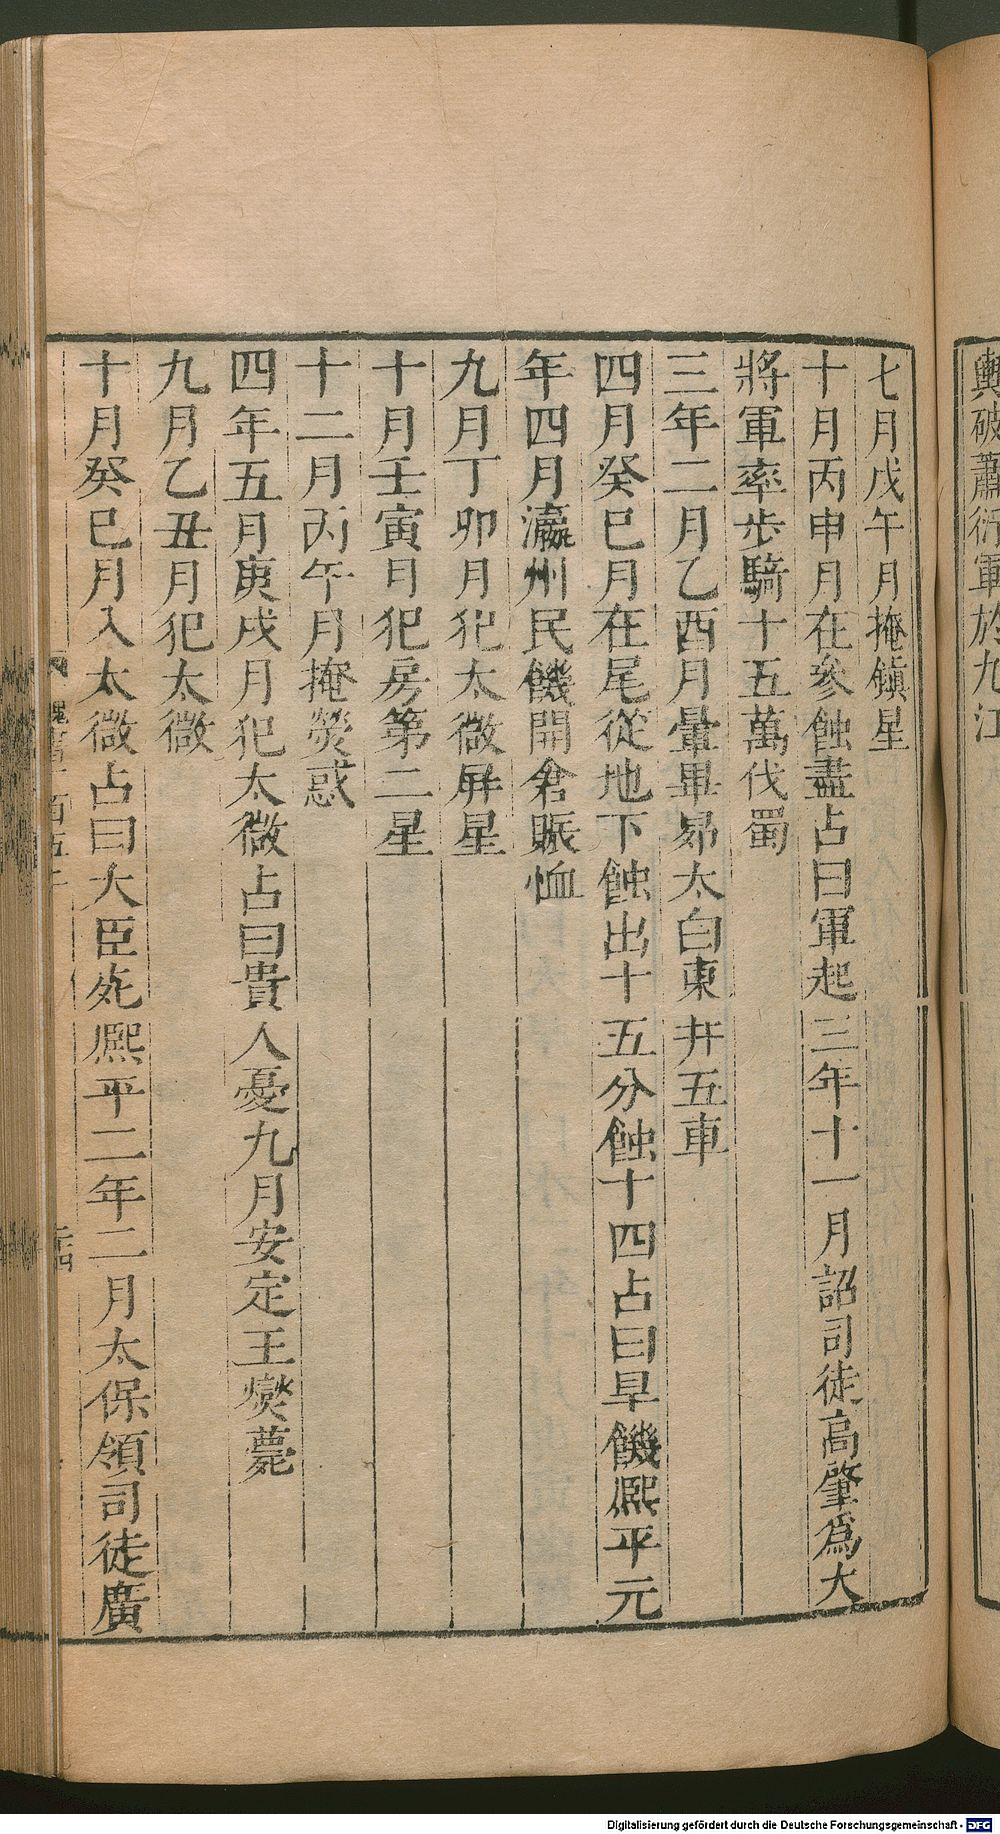 輿破蕭衍軍於九江
七月戊午月掩鎭星
十月丙申月在參蝕盡占曰軍起三年十一月詔司徒高肇爲大
將軍率步騎十五萬伐蜀
三年二月乙酉月暈畢昴太白東井五車
四月癸巳月在尾從地下蝕出十五分蝕十四占曰旱饑熙平元
年四月瀛州民饑開倉賑恤
九月丁卯月犯太微屏星
十月壬寅月犯房第二星
十二月丙午月掩熒惑
四年五月庚戌月犯太微占曰貴人憂九月安定王燮薨
九月乙丑月犯太微
十月癸巳月入太微占曰大臣死熙平二年二月太保領司徒廣
Digitalisierung gefördert durch die Deutsche Forschungsgemeinschaft - DFG